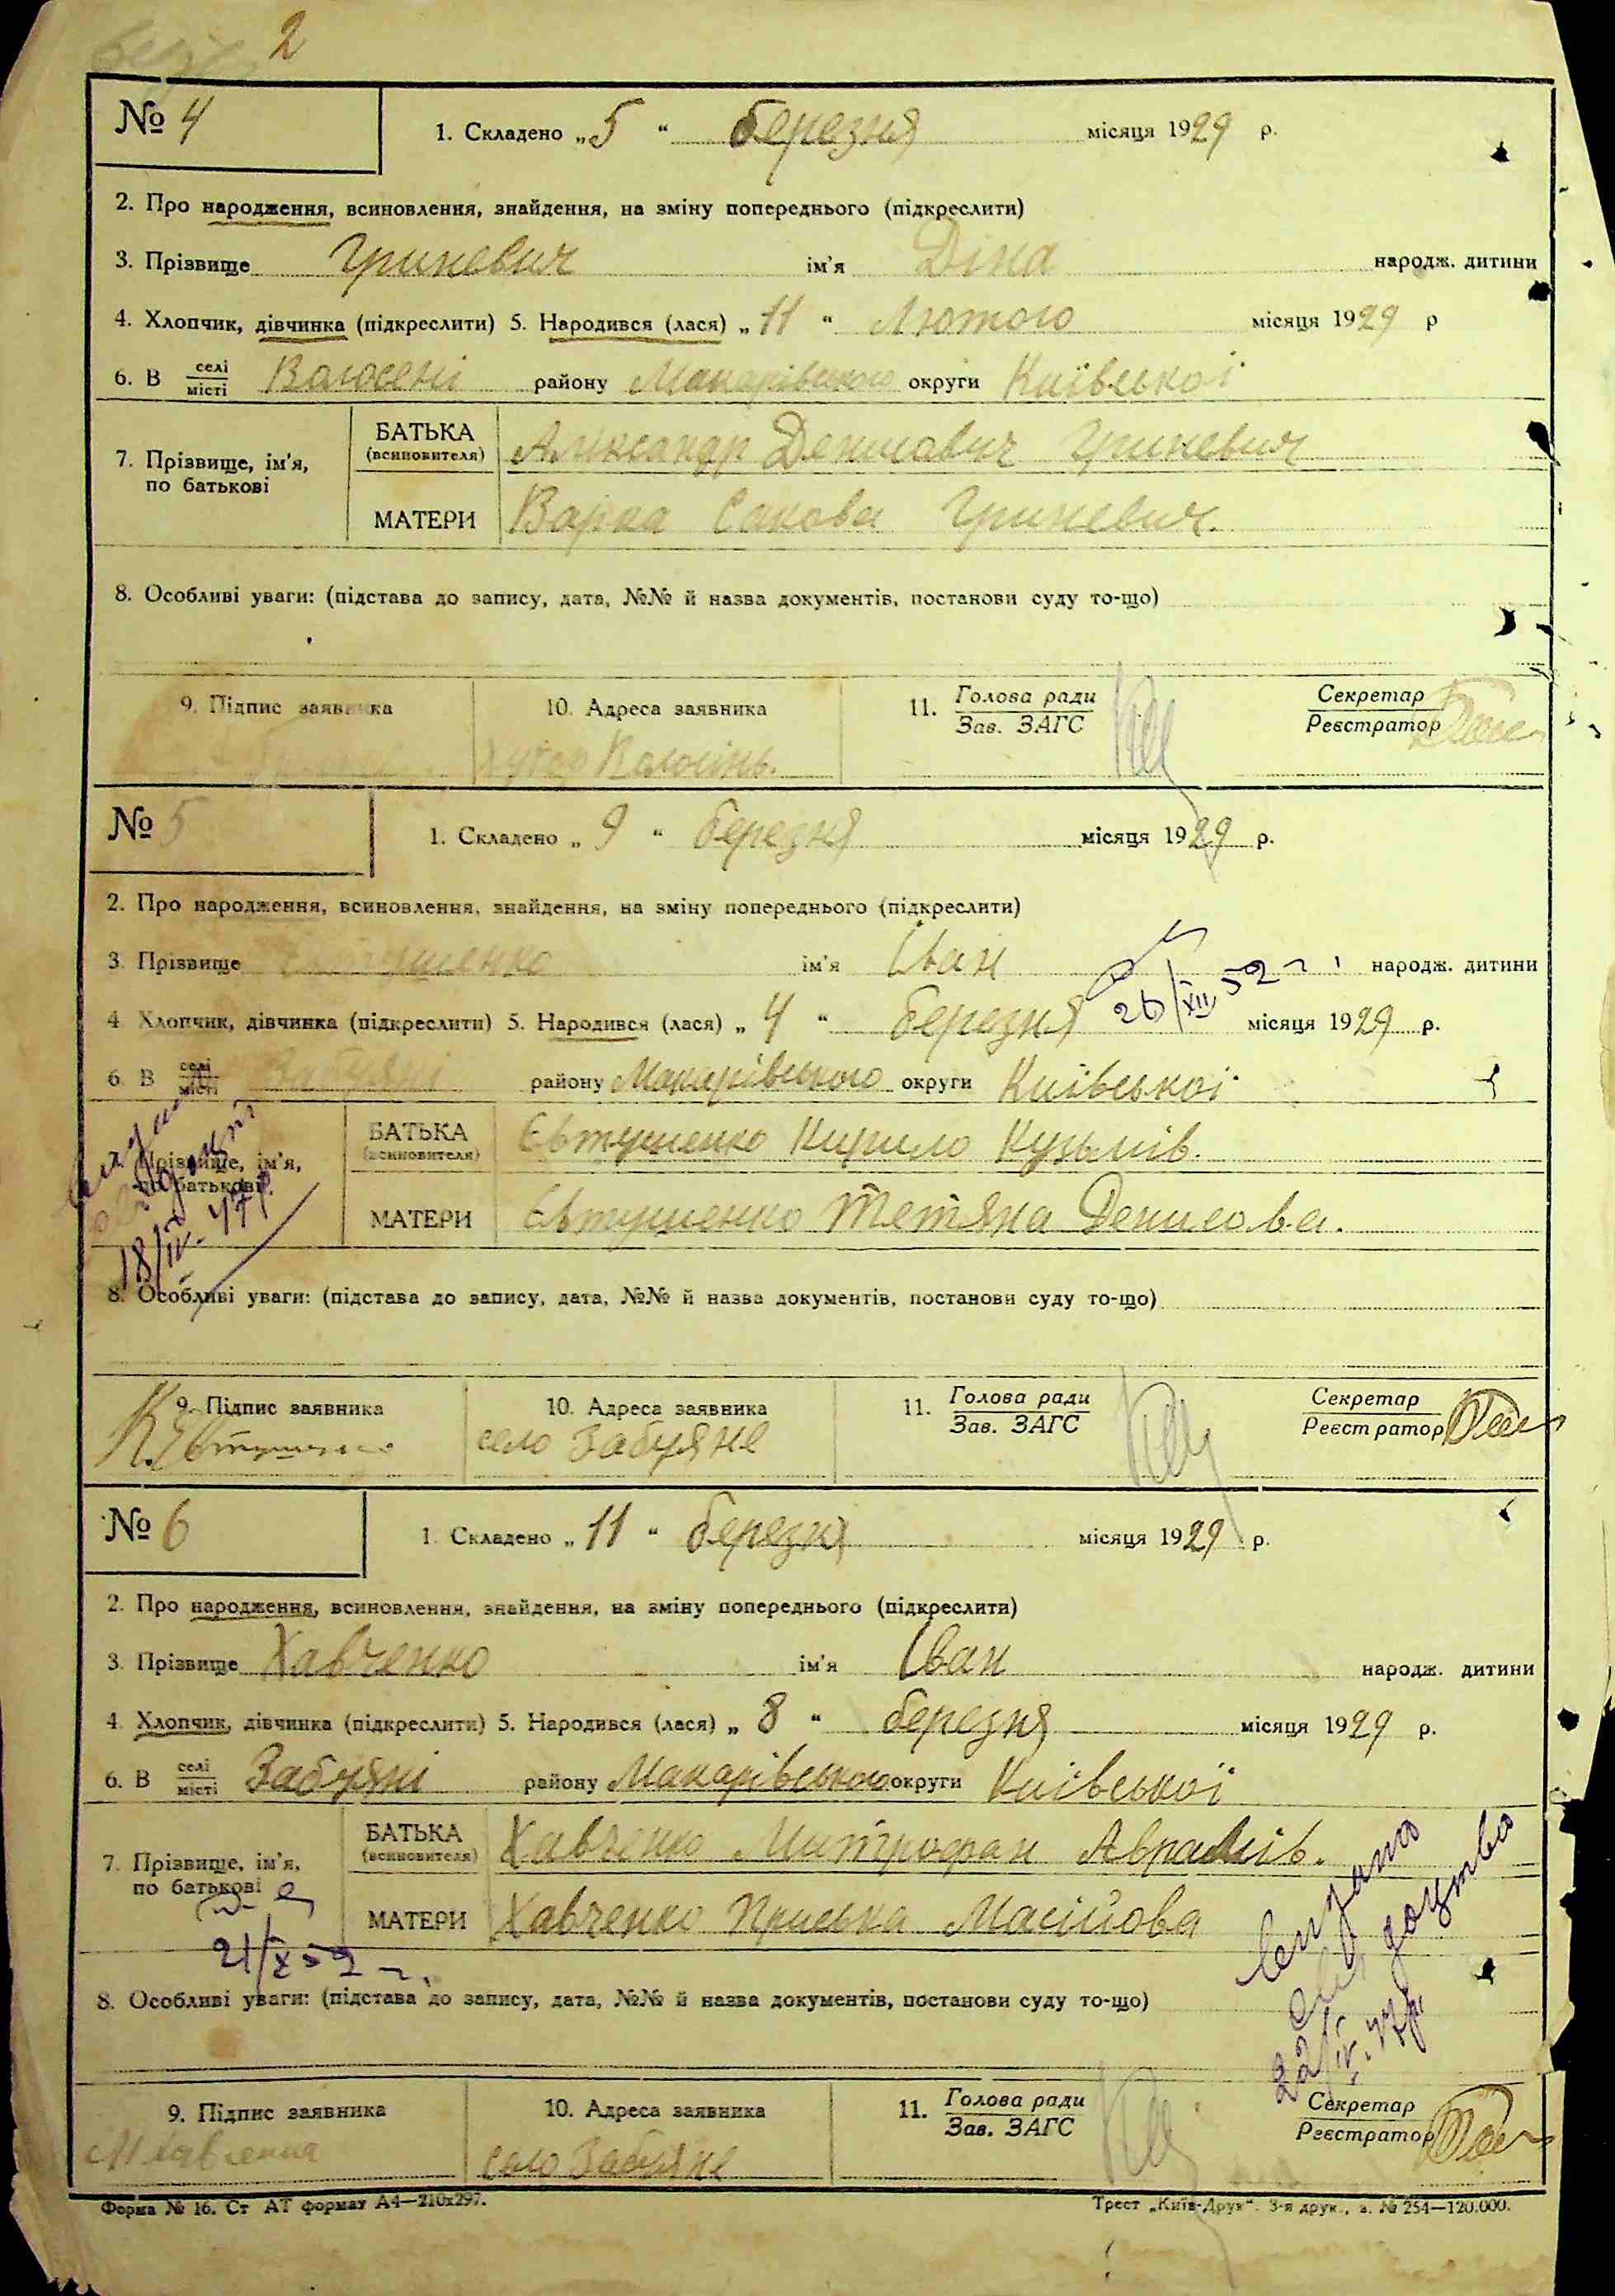 2
№ 4
1. Складено „5“ березня місяця 1929 р.
2. Про народження, всиновлення, знайдення, на зміну попереднього (підкреслити)
3. Прізвище Гриневич ім'я Діна народж. дитини
4. Хлопчик, дівчинка (підкреслити) 5. Народився (лася) „11“ Лютого місяця 1929 р
6. В селі/місті Волосені району Макарівського округи Київської
7. Прізвище, ім'я, по батькові
БАТЬКА (всиновителя) Александр Денисович Гриневич
МАТЕРИ Варка Сакова Гриневич.
8. Особливі уваги: (підстава до запису, дата, №№ й назва документів, постанови суду то-що)
9. Підпис заявника 10. Адреса заявника 11. Голова ради/Зав. ЗАГС Секретар/Реєстратор
хутор Волосінь.
№ 5
1. Складено „9“ березня місяця 1929 р.
2. Про народження, всиновлення, знайдення, на зміну попереднього (підкреслити)
3. Прізвище Євтушенко ім'я Іван народж. дитини
26/XII 52 г.
4. Хлопчик, дівчинка (підкреслити) 5. Народився (лася) „4“ березня місяця 1929 р.
6. В селі/місті Забуяні району Макарівського округи Київської
7. Прізвище, ім'я, по батькові
БАТЬКА (всиновителя) Євтушенко Кирило Кузьмів.
МАТЕРИ Євтушенко Тетяна Денисова.
18/IV. 47р
8. Особливі уваги: (підстава до запису, дата, №№ й назва документів, постанови суду то-що)
9. Підпис заявника 10. Адреса заявника 11. Голова ради/Зав. ЗАГС Секретар/Реєстратор
К. Євтушенко село Забуяне
№ 6
1. Складено „11“ березня місяця 1929 р.
2. Про народження, всиновлення, знайдення, на зміну попереднього (підкреслити)
3. Прізвище Хавченко ім'я Іван народж. дитини
4. Хлопчик, дівчинка (підкреслити) 5. Народився (лася) „8“ березня місяця 1929 р.
6. В селі/місті Забуяні району Макарівського округи Київської
7. Прізвище, ім'я, по батькові
БАТЬКА (всиновителя) Хавченко Митрофан Аврамів.
МАТЕРИ Хавченко Приська Масійова
21/X 52 г.
22/IV. 47р.
8. Особливі уваги: (підстава до запису, дата, №№ й назва документів, постанови суду то-що)
9. Підпис заявника 10. Адреса заявника 11. Голова ради/Зав. ЗАГС Секретар/Реєстратор
село Забуяне
Форма № 16. Ст АТ формат А4—210х297. Трест „Київ-Друк“. 3-я друк., з. № 254—120.000.